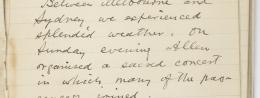 Between Melbourne and
Sydney we experienced
splendid weather. On
Sunday evening Allen
organised a sacred concert
in which many of the pas-
sengers joined.